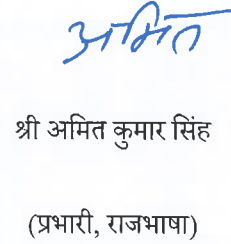 अमित
श्री अमित कुमार सिंह
(प्रभारी, राजभाषा)